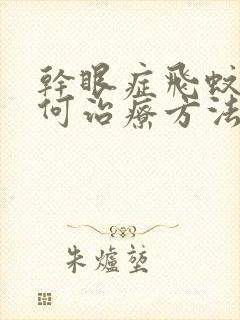 幹眼症飛蚊
何治療方法
朱爐莛